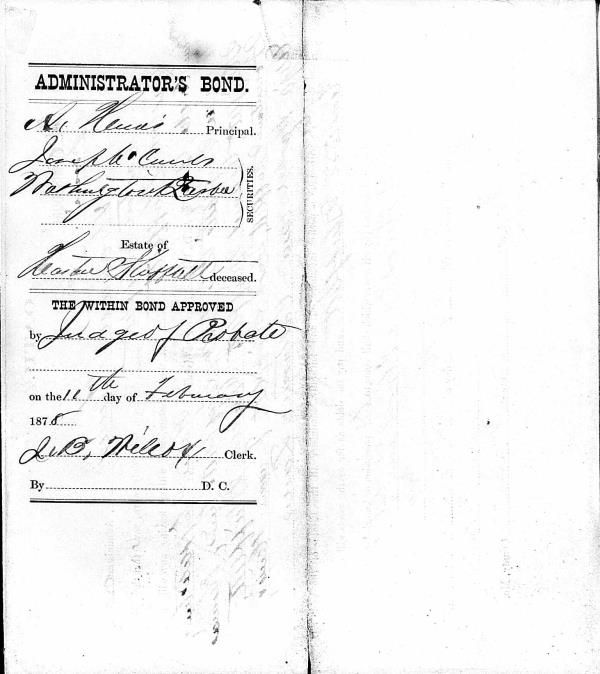 ADMINISTRATOR'S BOND.
A. Principal.
Joseph
Washington
SECURITIES.
Estate of
deceased.
THE WITHIN BOND APPROVED
by Judge of Probate
on the 11th day of February
1875
J. B. Wilcox, Clerk.
By D. C.